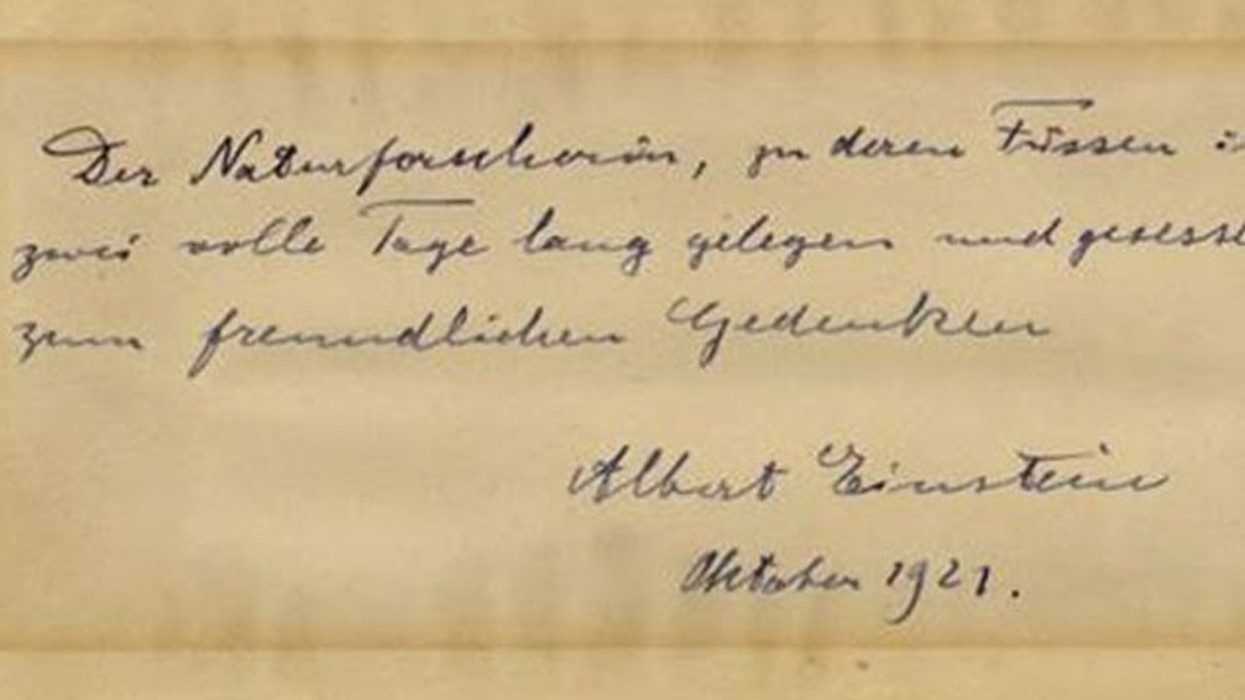 Der Naturforscherin, zu deren Füssen
zwei volle Tage lang gelegen und
zum freundlichen Gedenken
Albert Einstein
Oktober 1921.